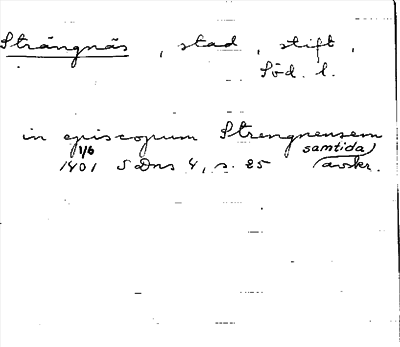 Strängnäs, stad, stift,
Söd. l.
in episcopum Strengnensem
1/6 samtida
1401 SDns 4, s. 25 avskr.